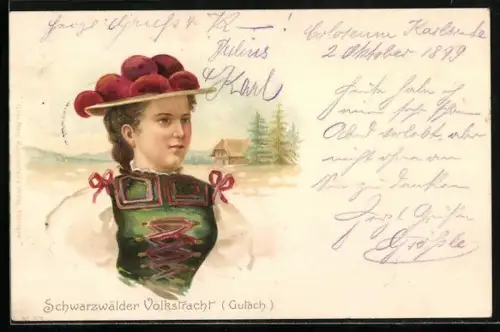 Herzl. Grüße u. K – !
Julius
Karl
Colosseum Karlsruhe
2 Oktober 1899
Heute habe ich
einen sehr schönen
Abd verlebt, aber
nicht ohne an
Sie zu denken
Herzl Grüße
Größle
Schwarzwälder Volkstracht (Gutach)